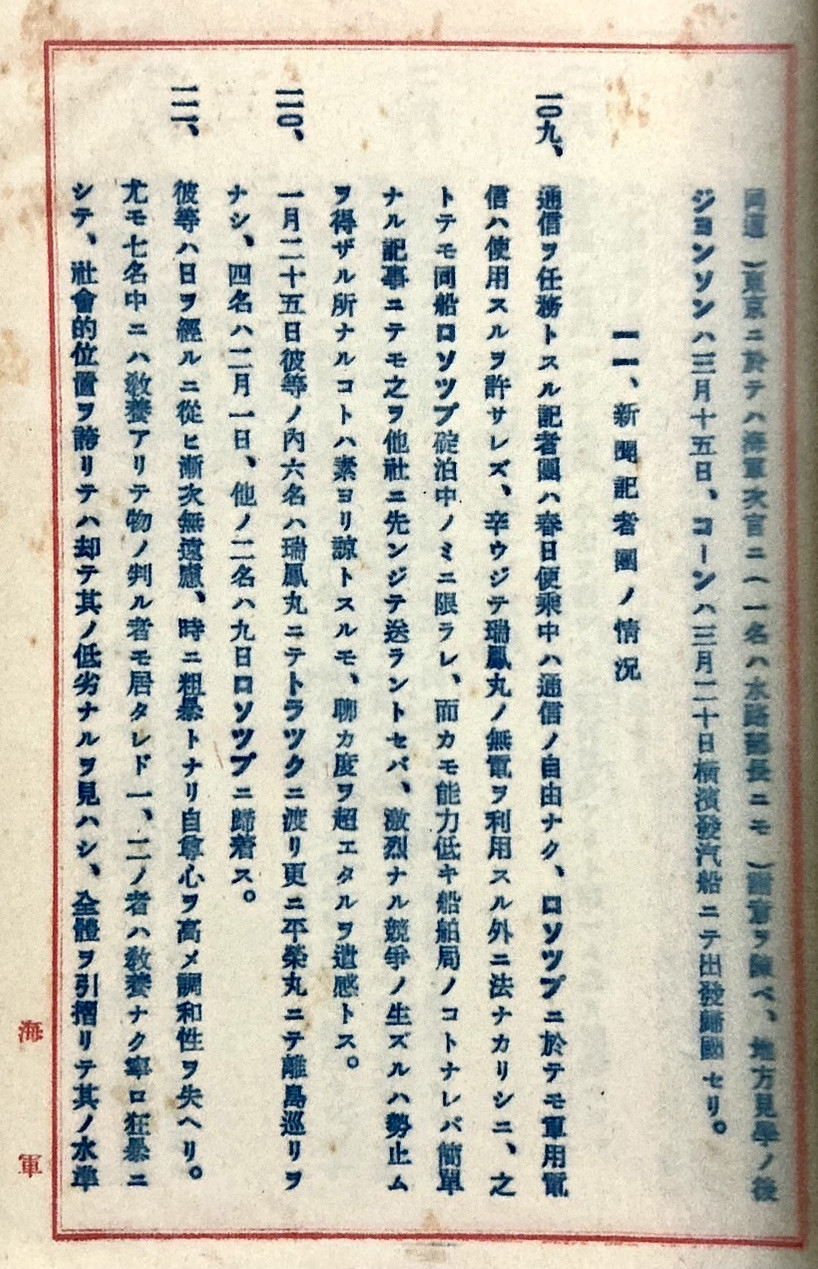 同道）東京ニ於テハ海軍次官ニ（一名ハ水路部長ニモ）謝意ヲ陳べ、地方見學ノ後
ジヨンソンハ三月十五日、コーンハ三月二十日横濱發汽船ニテ出發歸國セリ。
一一、新聞記者團ノ情況
一〇九、通信ヲ任務トスル記者團ハ春日便乘中ハ通信ノ自由ナク、ロソツプニ於テモ軍用電
信ハ使用スルヲ許サレズ、辛ウジテ瑞鳳丸ノ無電ヲ利用スル外ニ法ナカリシニ、之
トテモ同船ロソツプ碇泊中ノミニ限ラレ、而カモ能力低キ船舶局ノコトナレバ簡單
ナル記事ニテモ之ヲ他社ニ先ンジテ送ラントセバ、激烈ナル競爭ノ生ズルハ勢止ム
ヲ得ザル所ナルコトハ素ヨリ諒トスルモ、聊カ度ヲ超エタルヲ遺感トス。
一一〇、一月二十五日彼等ノ内六名ハ瑞鳳丸ニテトラツクニ渡リ更ニ平榮丸ニテ離島巡リヲ
ナシ、四名ハ二月一日、他ノ二名ハ九日ロソツプニ歸着ス。
一一一、彼等ハ日ヲ經ルニ從ヒ漸次無遠慮、時ニ粗暴トナリ自尊心ヲ高メ調和性ヲ失ヘリ。
尤モ七名中ニハ敎養アリテ物ノ判ル者モ居タレド一、二ノ者ハ敎養ナク寧ロ狂暴ニ
シテ、社會的位置ヲ誇リテハ却テ其ノ低劣ナルヲ見ハシ、全體ヲ引摺リテ其ノ水準
海軍